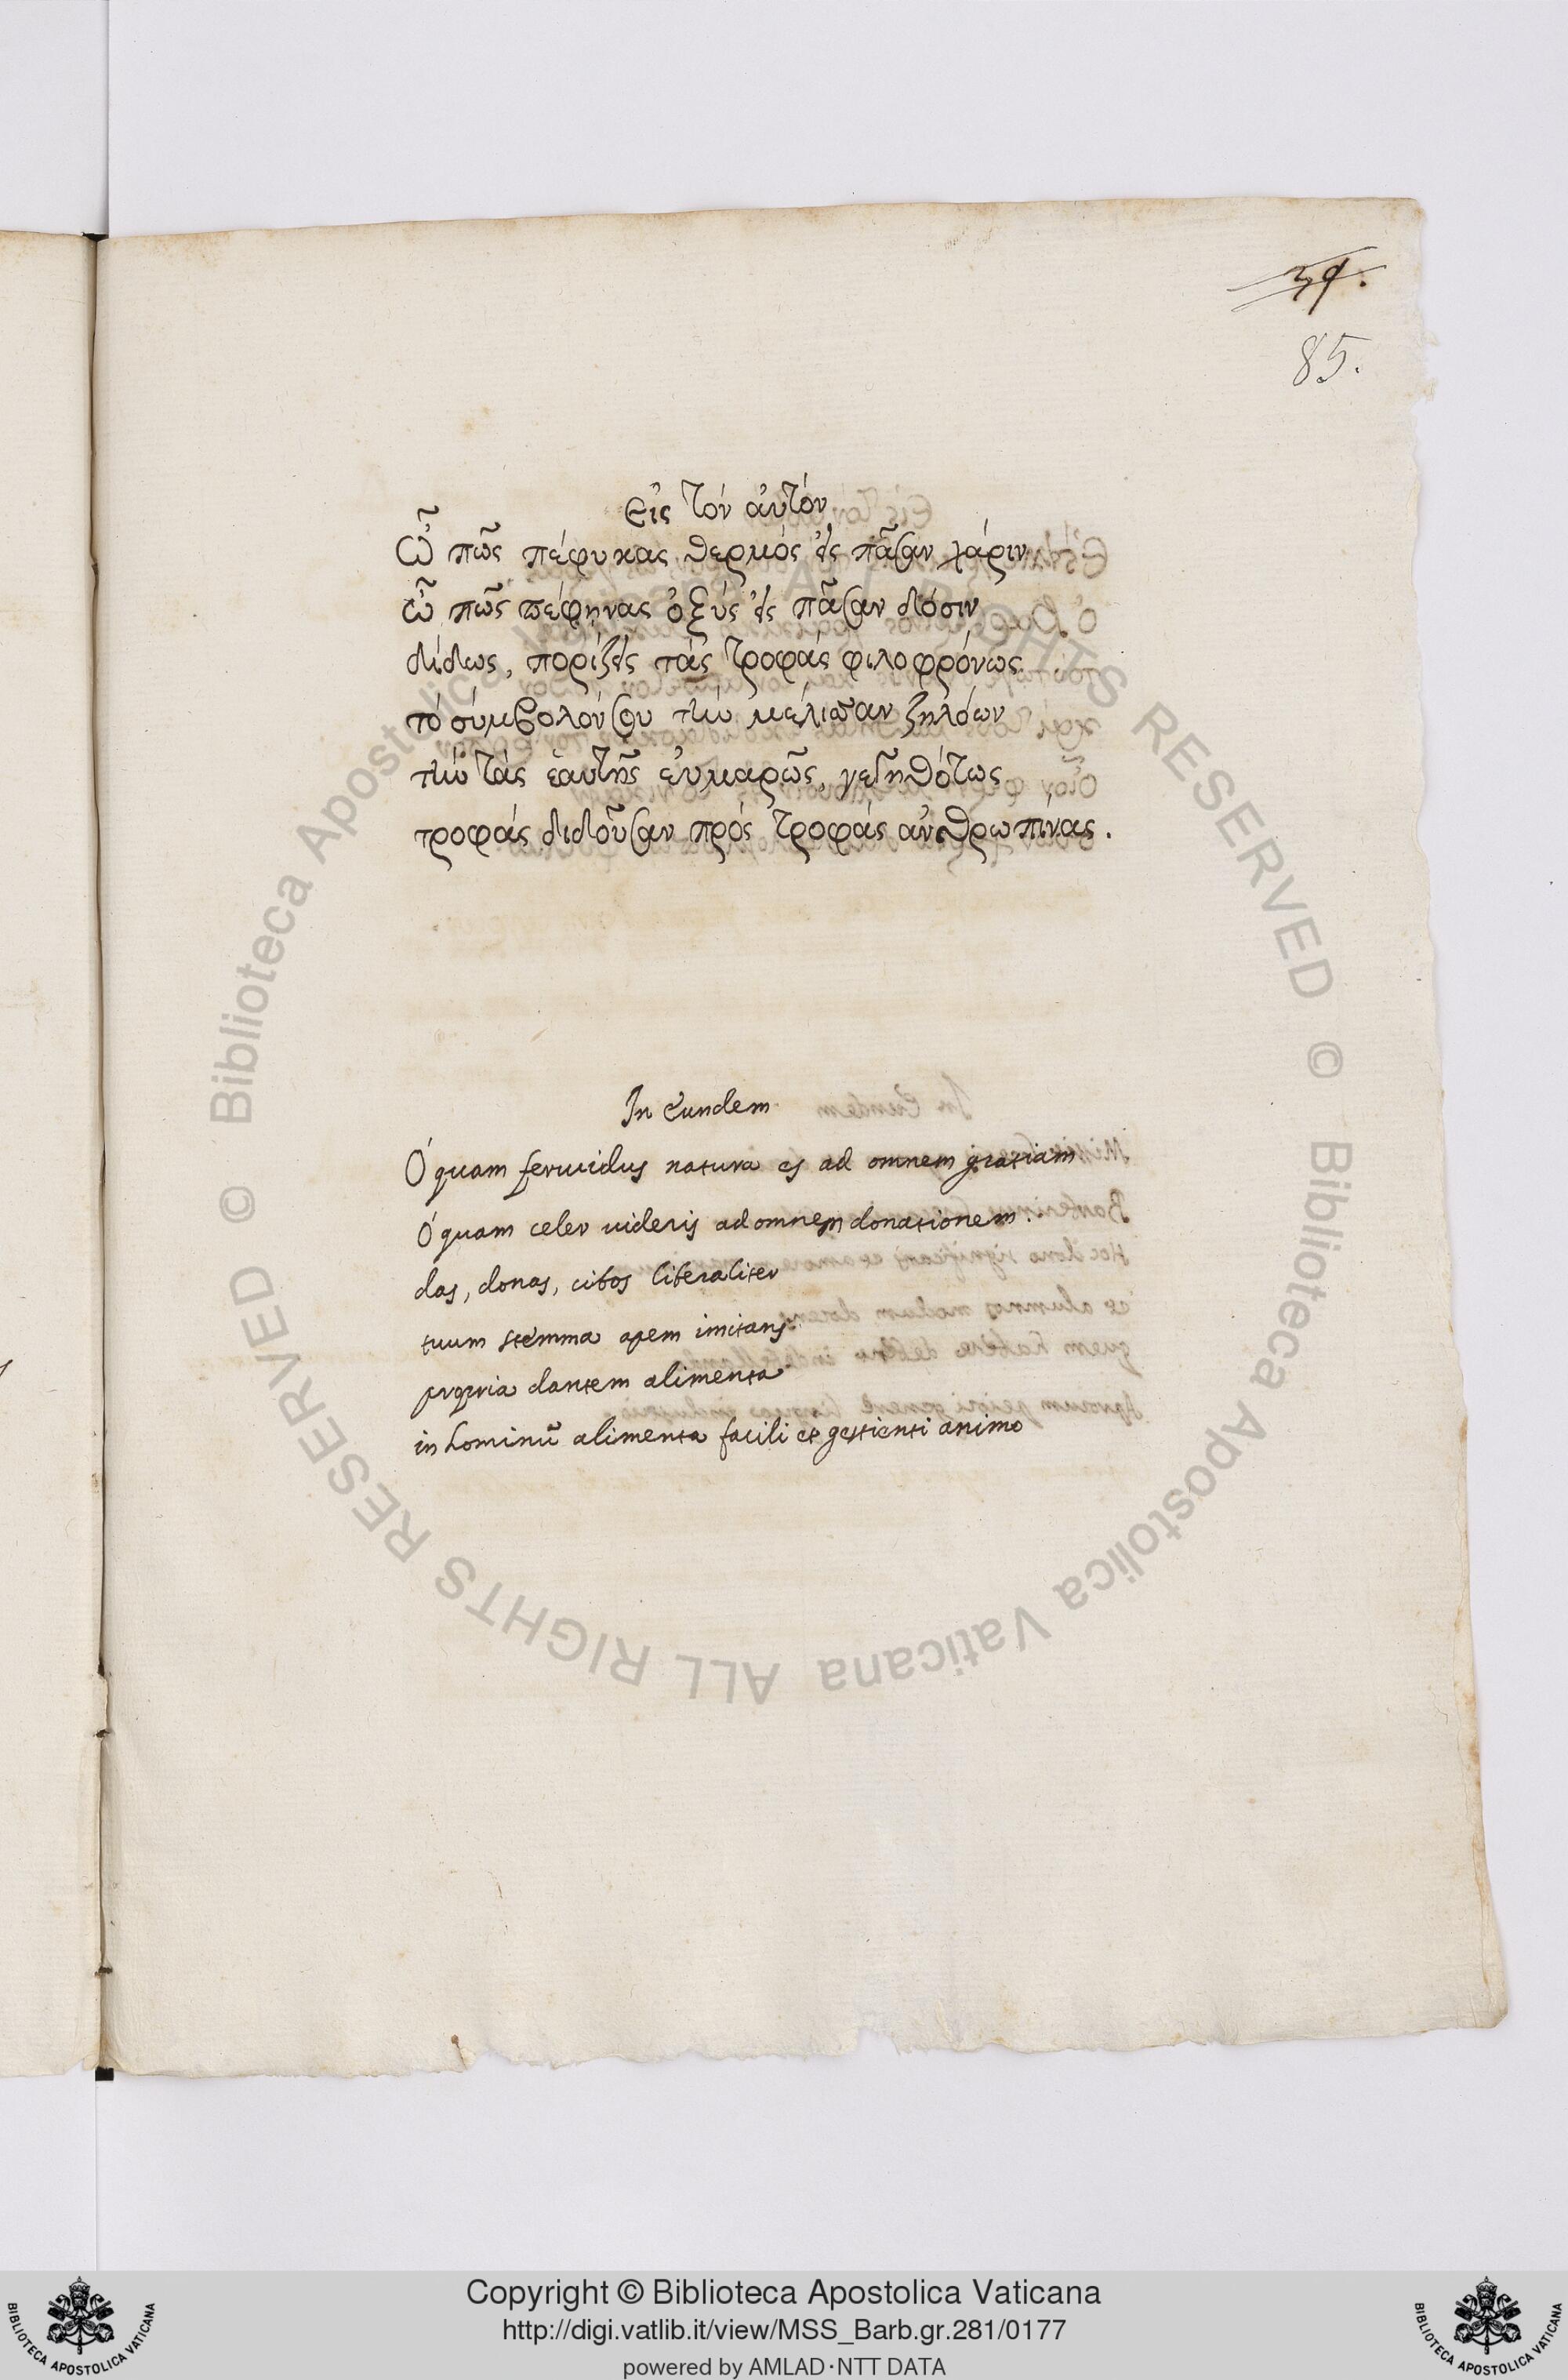 39.
85.
Εἰς τόν αὐτόν
Ὦ πῶς πέφυκας θερμός εἰς πᾶσαν χάριν
ὦ πῶς πέφηνας ὀξύς εἰς πᾶσαν δόσιν
δίδως, πορίζεις τάς τροφάς φιλοφρόνως
τό σύμβολόν σου τήν μέλισσαν ζηλόων
τήν τάς ἑαυτῆς εὐμαρῶς, γεγηθότως
τροφάς διδοῦσαν πρός τροφάς ἀνθρωπίνας.
In Eundem
Ó quam feruidus natura es ad omnem gratiam
Ó quam celer uideris ad omnem donationem.
das, donas, cibos liberaliter
tuum stemma apem imitans
propria dantem alimenta
in hominū alimenta facili et gestienti animo
© Biblioteca Apostolica Vaticana ALL RIGHTS RESERVED © Biblioteca Apostolica Vaticana ALL RIGHTS RESERVED
Copyright © Biblioteca Apostolica Vaticana
http://digi.vatlib.it/view/MSS_Barb.gr.281/0177
powered by AMLAD·NTT DATA
BIBLIOTECA APOSTOLICA VATICANA
BIBLIOTECA APOSTOLICA VATICANA